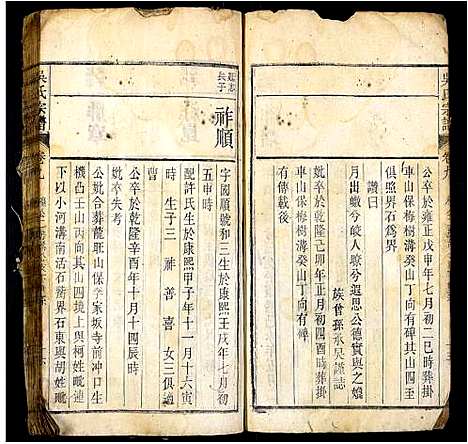 吳氏宗譜
卷九
公卒於雍正戊申年七月初二巳時葬掛
車山保梅樹溝癸山丁向有碑其山四至
俱照界石爲界
讚曰
月出皦兮皎人瞭兮遐思公德實與之嬓
姪曾孫永吳謹誌
妣卒於乾隆己卯年正月初四酉時葬掛
車山保梅樹溝癸山丁向有碑
有傳載後
吳氏宗譜
卷九
廷志
長子
祚順
字國順號和三生於康熙壬戌年七月初
五申時
配許氏生於康熙甲子年十一月十六寅
時 生子三 祚 善 喜 女三俱適
曹
妣卒失考
公卒於乾隆辛酉年十月十四辰時
公妣合葬龍旺山保家坂寺前冲口生
基壬山丙向其山四境上與柯姓毗連
下以小河溝南活石界石東與胡姓毗